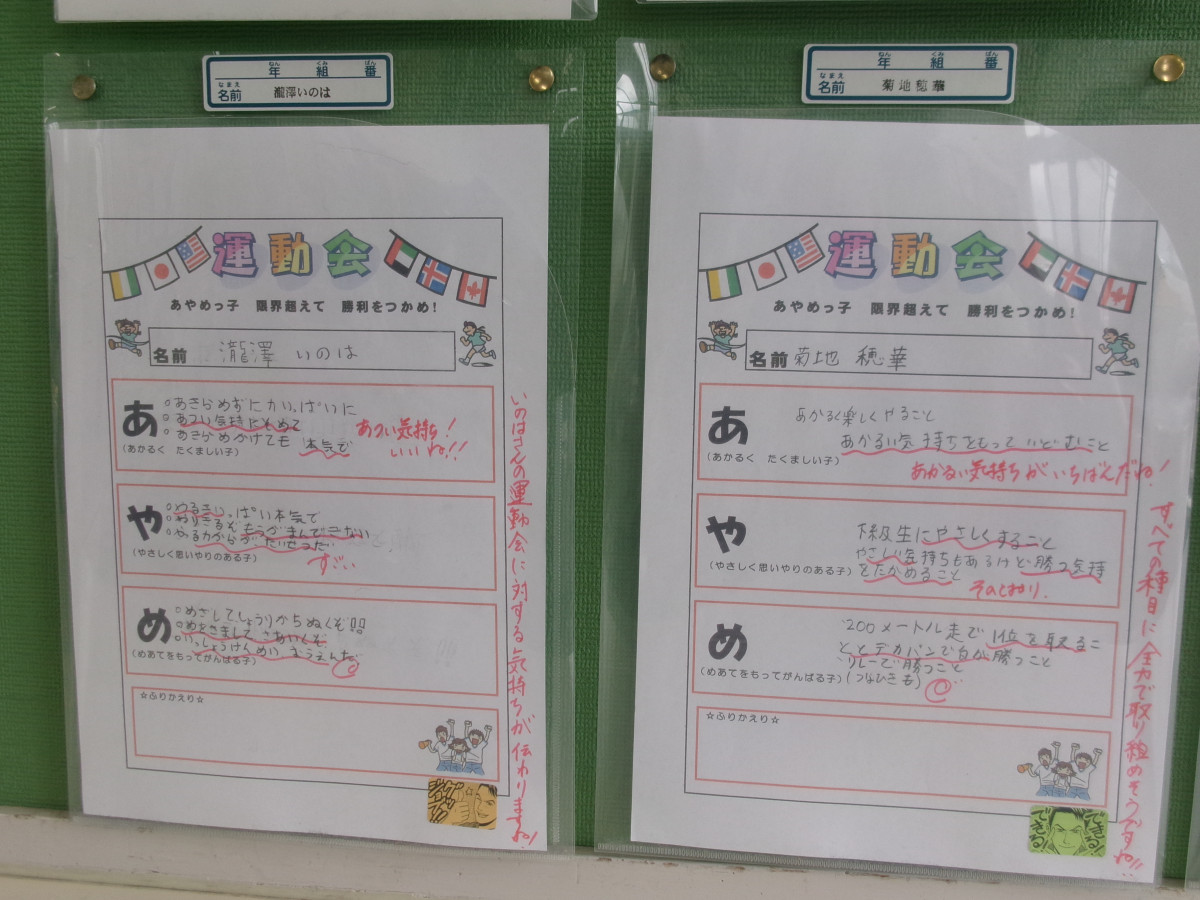 年 組 番
ねん くみ ばん
なまえ
名前 瀧澤いのは
運動会
あやめっ子 限界超えて 勝利をつかめ!
名前 瀧澤 いのは
あ
(あかるく たくましい子)
○あきらめずにかい
ぱいに
○あつい気持
○あきらめかけても 本気で
あつい気持ち!
いいね!!
や
(やさしく思いやりのある子)
ぱい本気で
すごい
め
(めあてをもってがんばる子)
○めざしてしょうりかちぬくぞ!!
○めをさまして
○いっしょうけんめい おうえんだ
☆ふりかえり☆
いのはさんの運動会に対する気持ちが伝わりますね!
グッ
ジョブ!!
年 組 番
ねん くみ ばん
なまえ
名前 菊地穂華
運動会
あやめっ子 限界超えて 勝利をつかめ!
名前 菊地 穂華
あ
(あかるく たくましい子)
あかるく楽しくやること
あかるい気持ちをもっていどむこと
あかるい気持ちがいちばんだね!
や
(やさしく思いやりのある子)
下級生にやさしくすること
やさしい気持ちもあるけど勝つ気持
をたかめること
そのとおり.
め
(めあてをもってがんばる子)
200メートル走で1位を取るこ
ととデカパンで白が勝つこと
リレーで勝つこと
(つなひきも)
☆ふりかえり☆
すべての種目に全力で取り組めそうですね!!
できる!
できる!